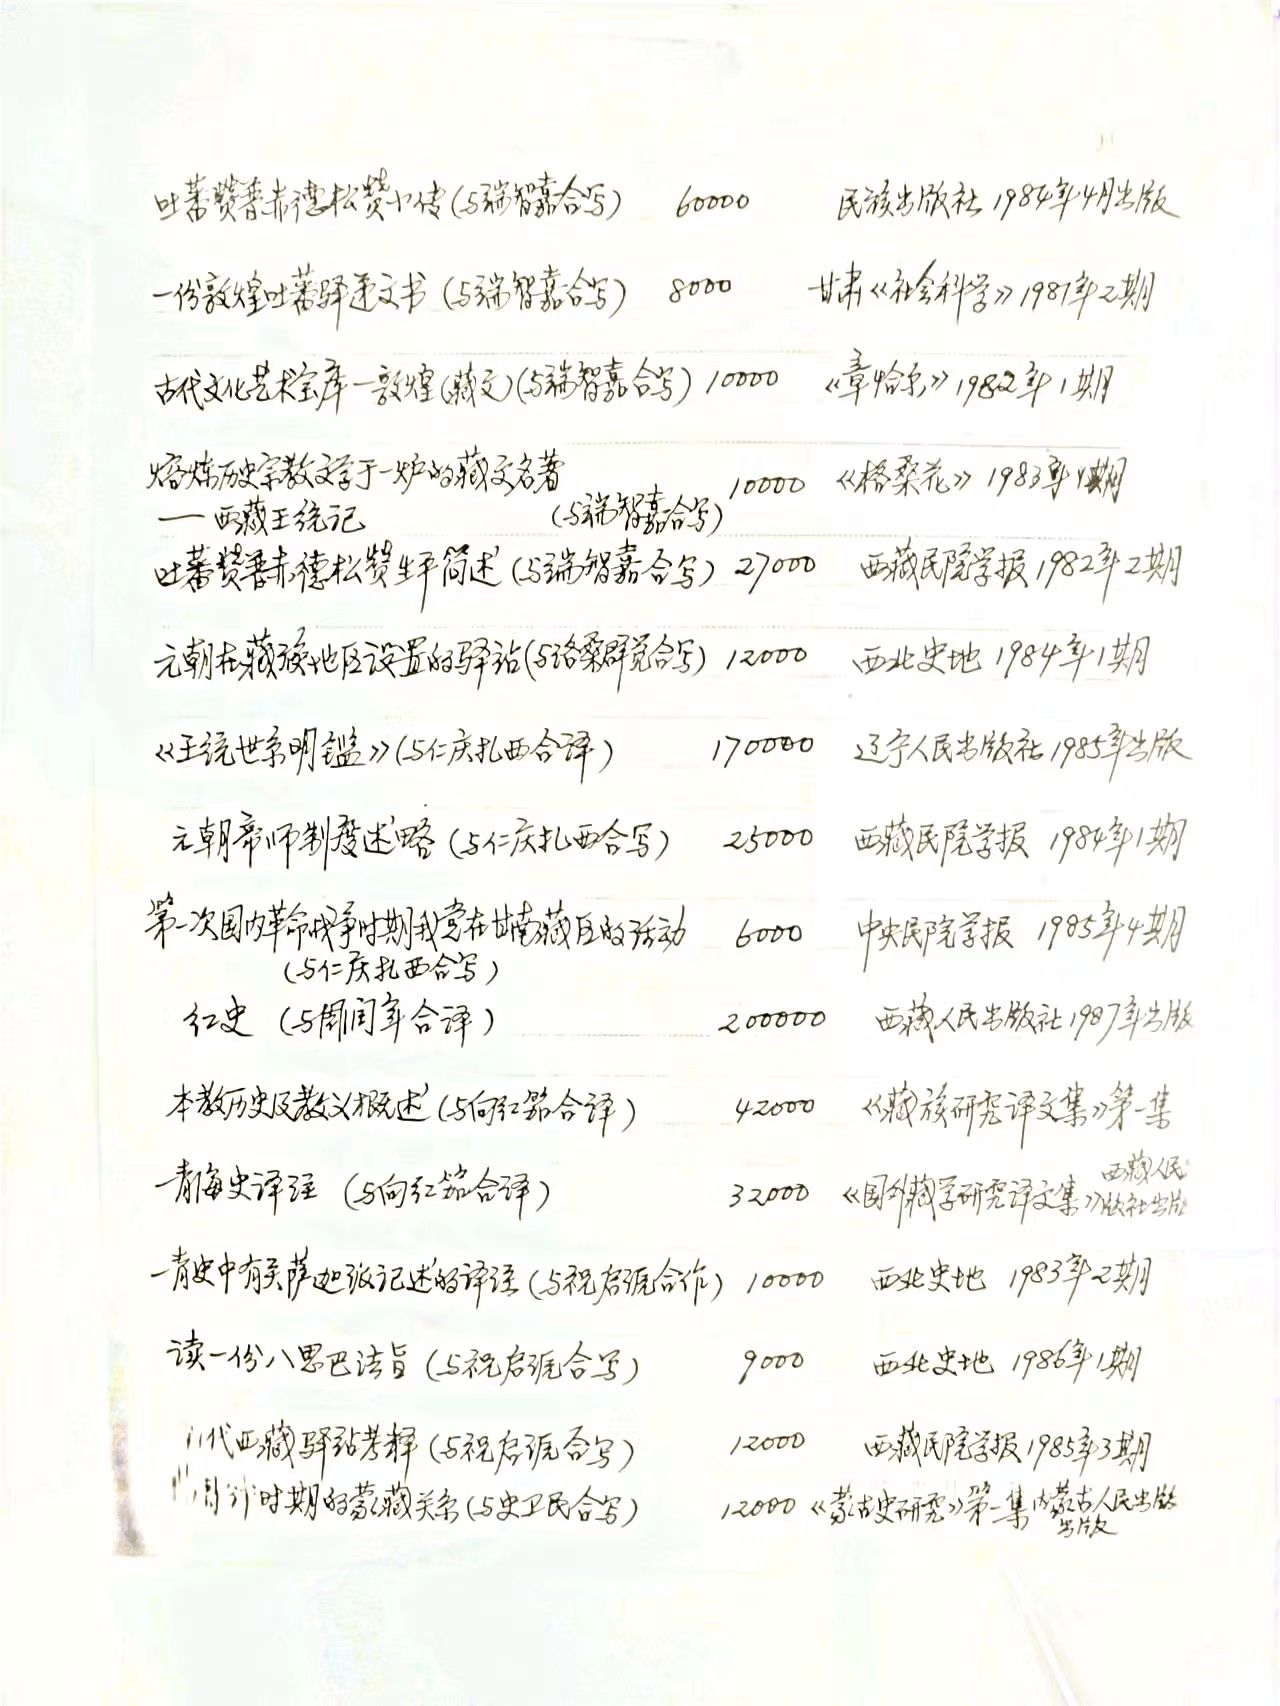 吐蕃赞普赤德松赞小传(与瑞智嘉合写) 60000 民族出版社 1984年4月出版
一份敦煌吐蕃驿递文书(与瑞智嘉合写) 8000 甘肃《社会科学》1981年2期
古代文化艺术宝库一敦煌(藏文)(与瑞智嘉合写) 10000 《章恰尔》1982年1期
熔炼历史宗教文学于一炉的藏文名著
——西藏王统记 (与瑞智嘉合写) 10000 《格桑花》 1983年 期
吐蕃赞普赤德松赞生平简述(与瑞智嘉合写) 27000 西藏民院学报 1982年2期
元朝在藏族地区设置的驿站(与洛桑群觉合写) 12000 西北史地 1984年1期
《王统世系明鉴》(与仁庆扎西合译) 170000 辽宁人民出版社 1985年出版
元朝帝师制度述略(与仁庆扎西合写) 25000 西藏民院学报 1984年1期
第一次国内革命战争时期我党在甘南藏区的活动 6000 中央民院学报 1985年4期
(与仁庆扎西合写)
红史 (与周润年合译) 200000 西藏人民出版社 1987年出版
本教历史及教义概述(与向红笳合译) 42000 《藏族研究译文集》第一集
青海史译注 (与向红笳合译) 32000 《国外藏学研究译文集》西藏人民
版社出版
青史中有关萨迦派记述的译注(与祝启源合作) 10000 西北史地 1983年2期
读一份八思巴法旨(与祝启源合写) 9000 西北史地 1986年1期
代西藏驿站考释(与祝启源合写) 12000 西藏民院学报 1985年3期
时期的蒙藏关系(与史卫民合写) 12000 《蒙古史研究》第一集 内蒙古人民出版
出版